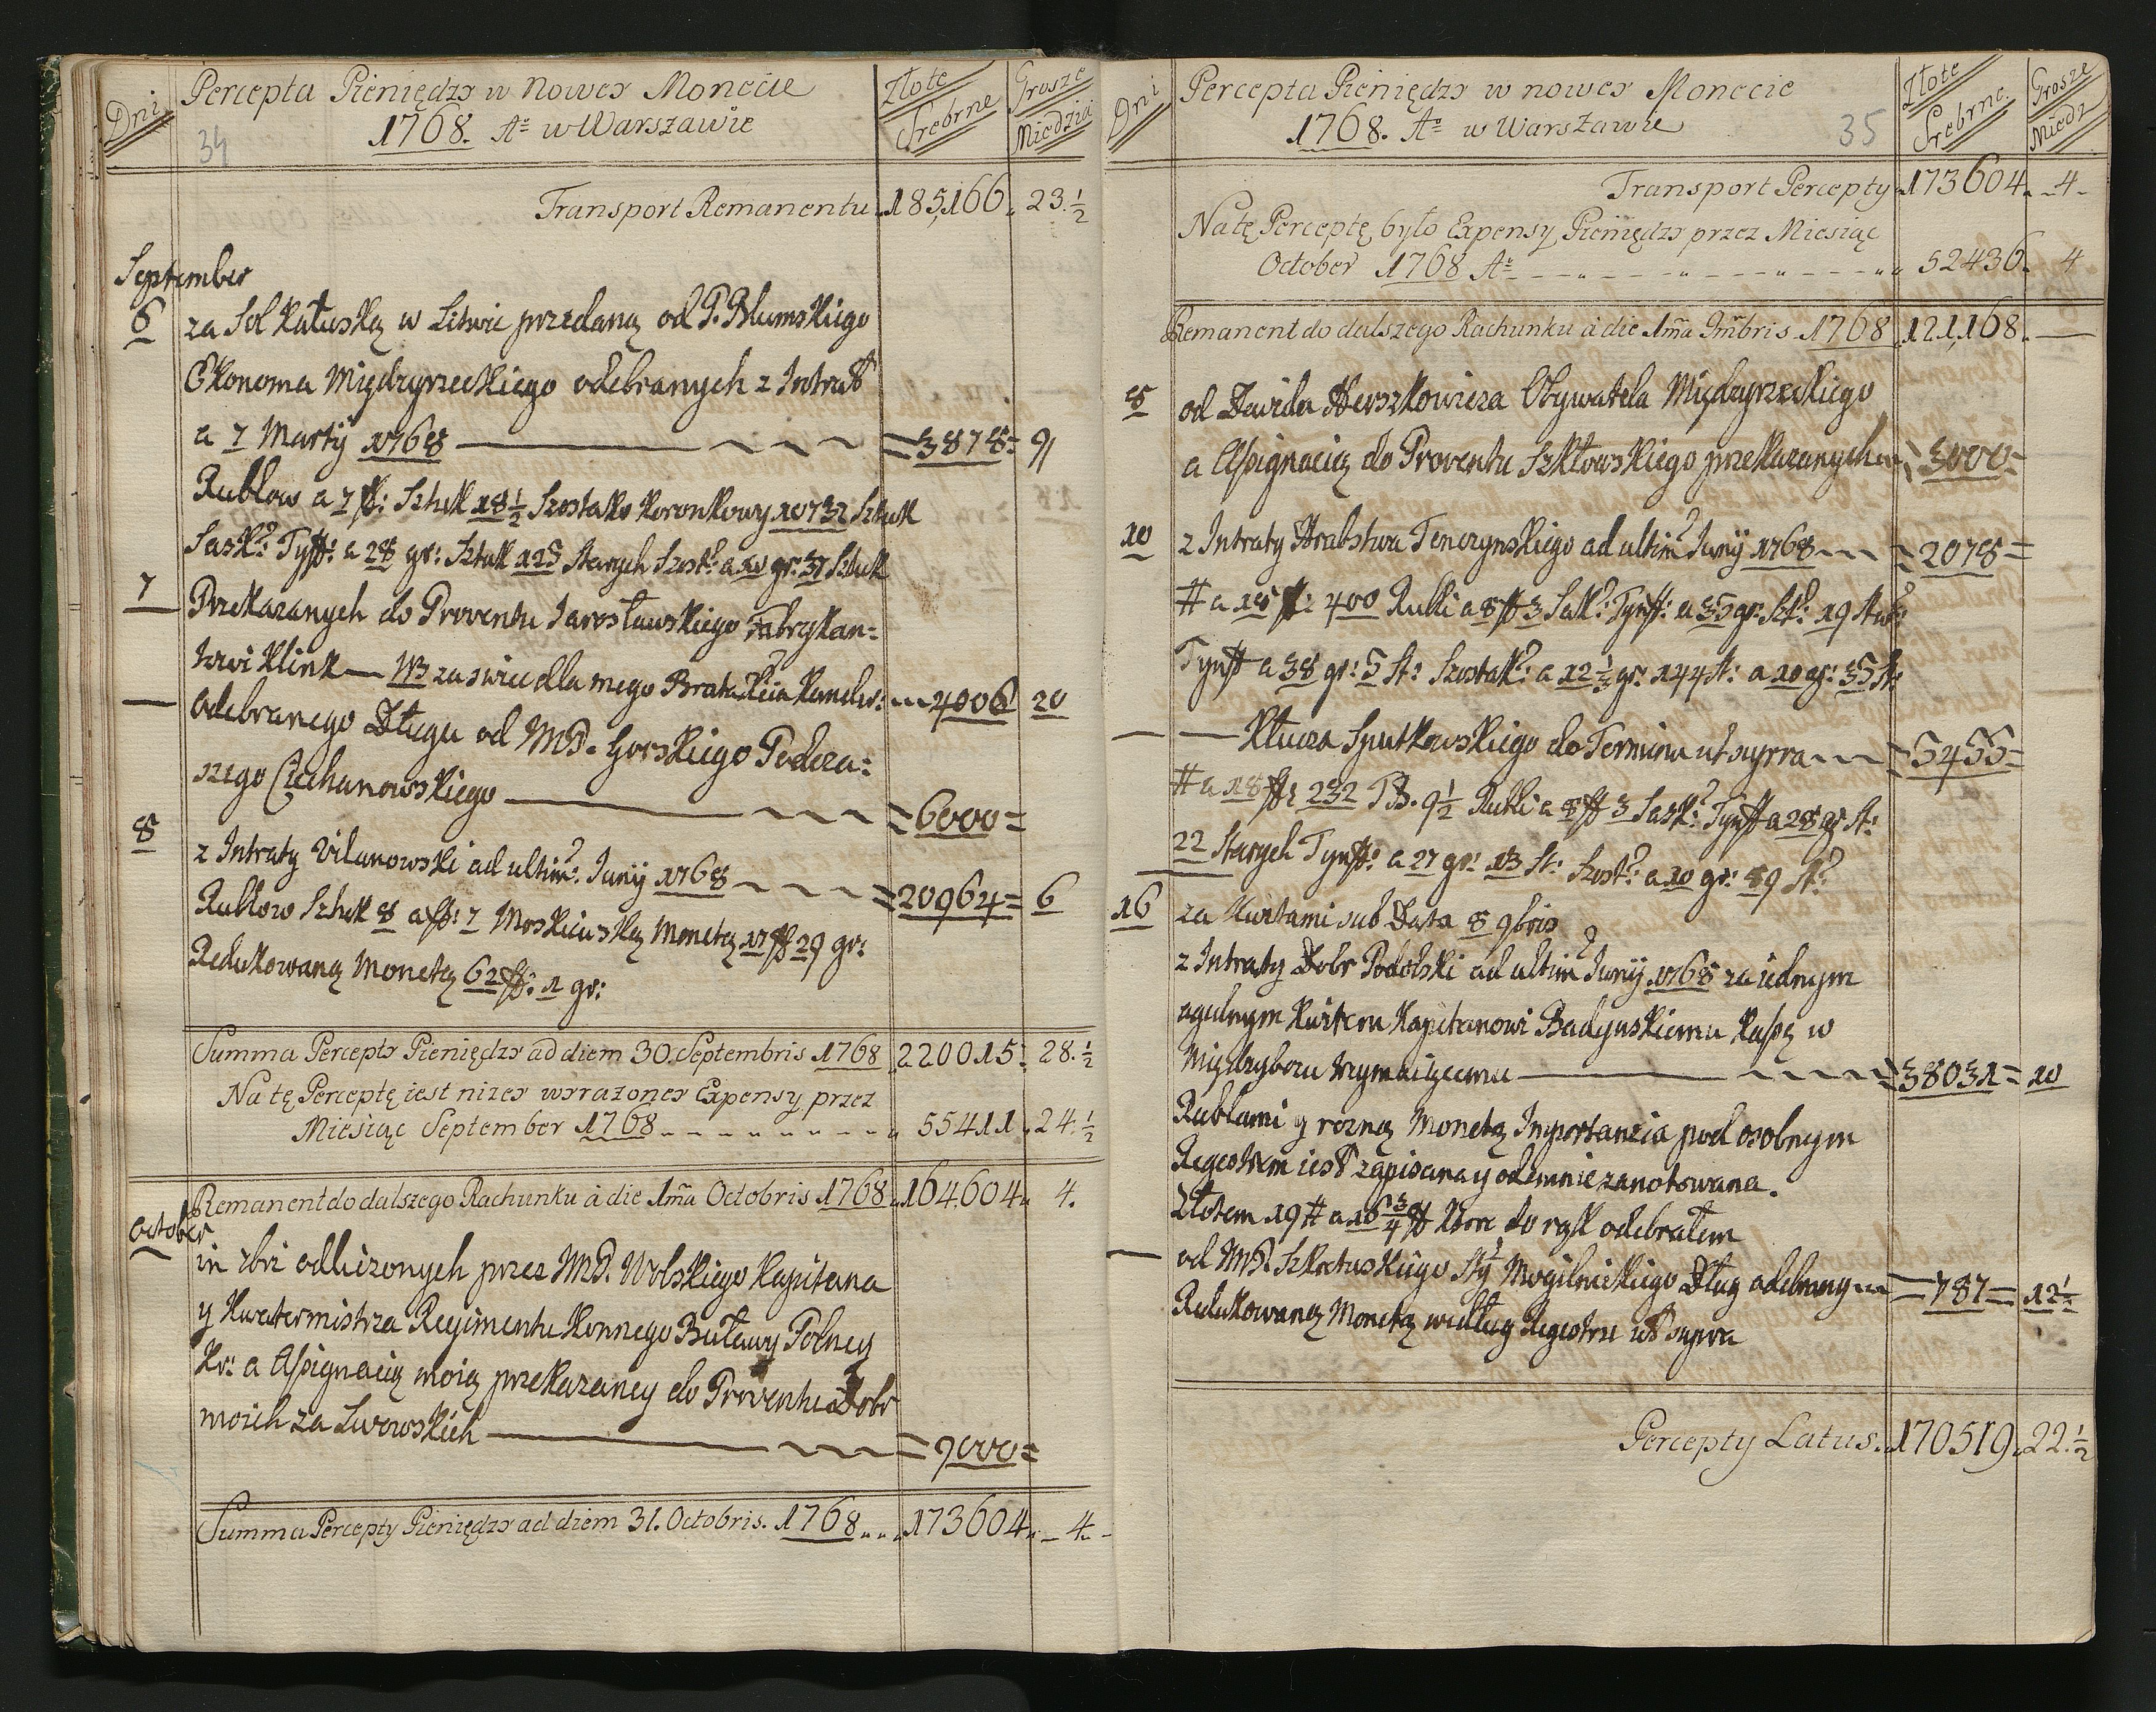 Dni
Percepta Pieniędzy w Nowey Monecie
Złote Srebrne
Grosze Miedzia
34
1768. Aº w Warszawie
Transport Remanentu 185,166 23 ½
September
6 za Sol Kałuską w Litwie przedaną od P. Blumskiego
Ekonoma Międzyrzeckiego odebranych z Intrat
a 7 Martij 1768 3878 9
Rublow a 7 Sztuk 18½ Szostako Koronkowy 10732 Sztuk
Sask: Tynf: a 28 gr: Sztuk 125 Starych Szost: a 10 gr: 37 Sztuk
7 Przekazanych do Proventu Jarosławskiego Fabrykan=
towi Klink NB za swiec dla mego Brata Xcia Kanclr: 4006 20
odebranego Długu od MP. Gorskiego Podcza=
szego Ciechanowskiego 6000
8 z Intraty Vilanowski ad ultim: Junij 1768 20964 6
Rublow Sztuk 8 a fl: 7 Moskiewską Monetą 17 fl 29 gr:
Redukowaną Monetą 62 fl: 1 gr:
Summa Percepty Pieniędzy ad diem 30. Septembris 1768 220015 28. ½
Na tę Perceptę iest nizey wyrazoney Expensy przez
Miesiąc September 1768 55411 24. ½
Remanent do dalszego Rachunku à die 1ma Octobris 1768 164,604 4.
October
in 8bri odliczonych przez MP. Wolskiego Kapitana
y Kwatermistrza Regimentu Konnego Buławy Polney
Kr: a Assignacią moią przekazaney do Proventu Dobr
moich za Lwowskich 9000
Summa Percepty Pieniędzy ad diem 31. Octobris. 1768 173604 4.
Dni
Percepta Pieniędzy w nowey Monecie
Złote Srebrne.
Grosze Miedz
1768. Aº w Warszawie
35
Transport Percepty 173604 4
Na tę Perceptę było Expensy Pieniędzy przez Miesiąc
October 1768 Aº 52436 4
Remanent do dalszego Rachunku à die 1ma 9mbris 1768 121,168
8 od Dawida Herszkowicza Obywatela Międzyrzeckiego
a Assignacią do Proventu Szkłowskiego przekazanych 3000
10 z Intraty Hrabstwa Tenczynskiego ad ultim: Junij 1768 2078
# a 18 fl: 400 Rubli a 8 fl 3 Sak: Tynf: a 35 gr: Szt: 19 Star:
Tynff a 38 gr: 5 St: Szostak: a 12½ gr: 144 st: a 10 gr: 35 St:
Klucza Sputkowskiego do Terminu ut supra 5455
# a 18 fl: 232 TB. 9½ Rubli a 8 fl 3 Sask: Tynff a 28 gr St:
22 Starych Tynff: a 27 gr: 13 St: Szost: a 10 gr: 89 St:
16 za Kwitami sub Data 8 9bris
z Intraty Dobr Podolski ad ultim: Junij 1768 za iednym
ogulnym Kwitem Kapitanowi Badynskiemu Kassę w
Międzyborzu trzymaiącemu 38031 10
Rublami y rozną Monetą Importancia pod osobnym
Regestrem iest zapisana y odemnie zanotowana.
Złotem 19 # a 16 ¾ fl Ktore do rąk odebrałem
od MP. Szkatuskiego Sty Mogilnickiego Dług odebrany 787 12½
Redukowaną Monetą według Regestru ut supra
Percepty Latus. 170519 22. ½